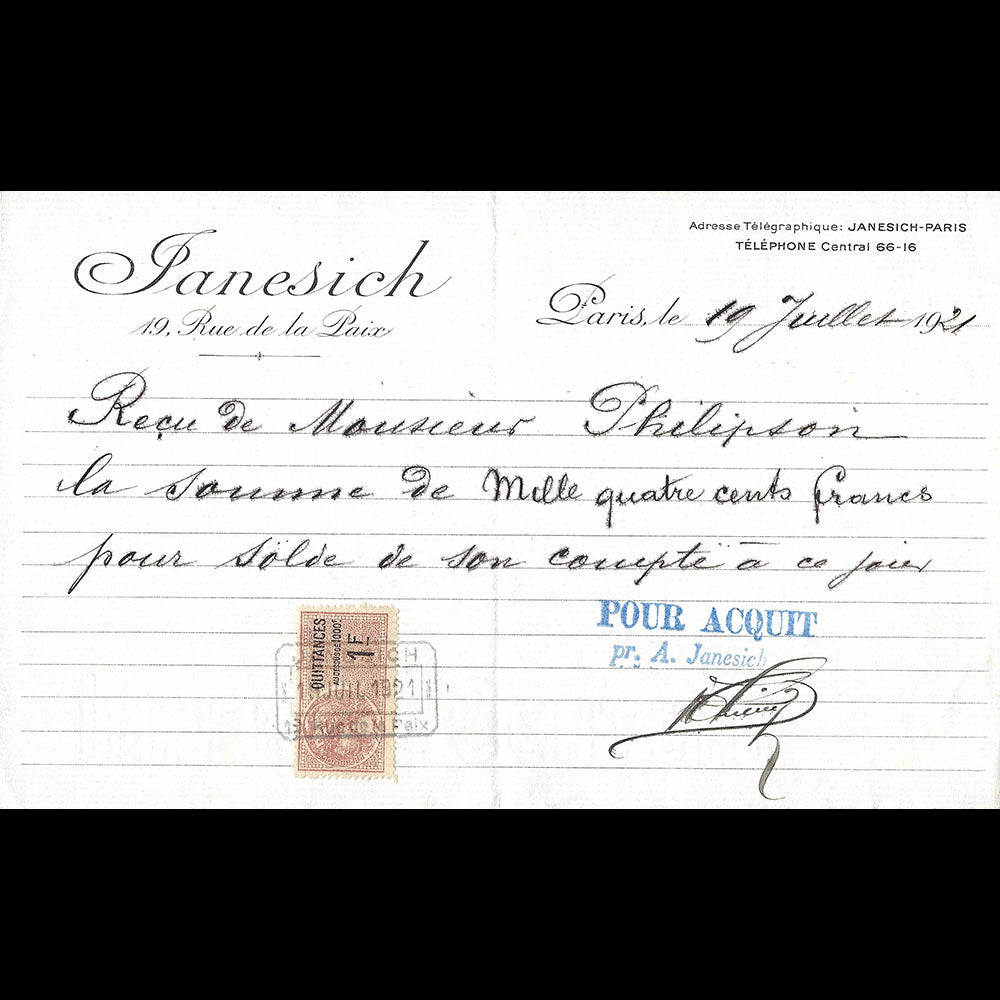 Janesich
19, Rue de la Paix
Adresse Télégraphique: JANESICH-PARIS
TÉLÉPHONE Central 66-16
Paris, le 19 Juillet 1921
Reçu de Monsieur Philipson
la somme de Mille quatre cents francs
pour solde de son compte à ce jour
QUITTANCES
AU DESSUS DE 1000F
1F
JANESICH
JUIL 1921
19, Rue de la Paix
POUR ACQUIT
pr. A. Janesich